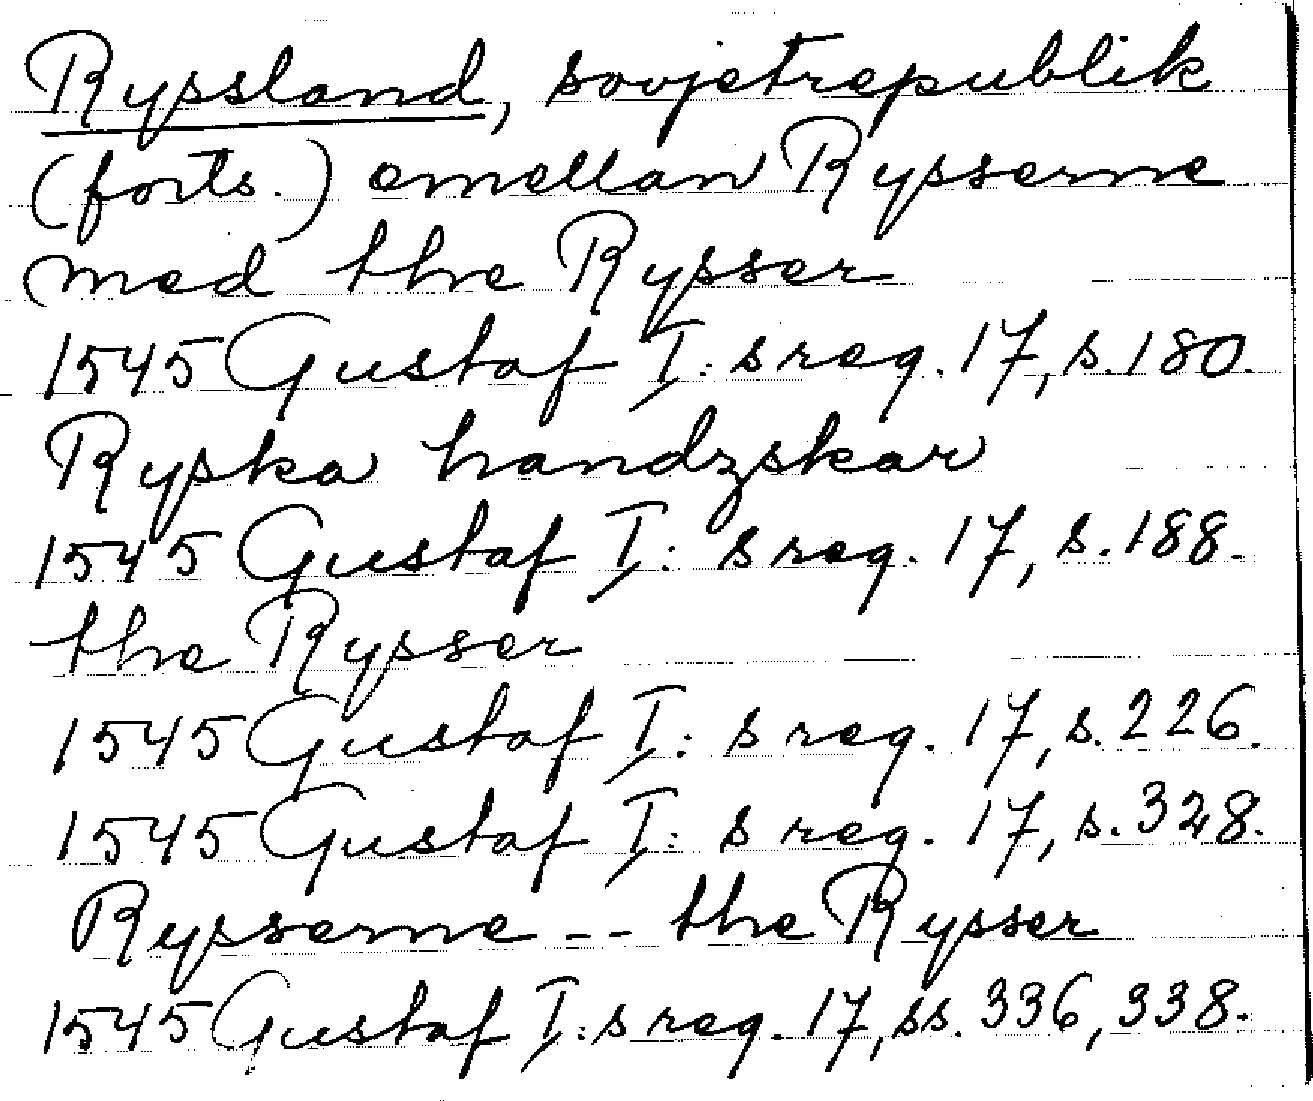 Ryssland, sovjetrepublik
(forts.) emellan Rysserne
med the Rysser
1545 Gustaf I:s reg. 17, s. 180.
Ryska handzskar
1545 Gustaf I:s reg. 17, s. 188.
the Rysser
1545 Gustaf I:s reg. 17, s. 226.
1545 Gustaf I:s reg. 17, s. 328.
Rysserne -- the Rysser
1545 Gustaf I:s reg. 17, ss. 336, 338.